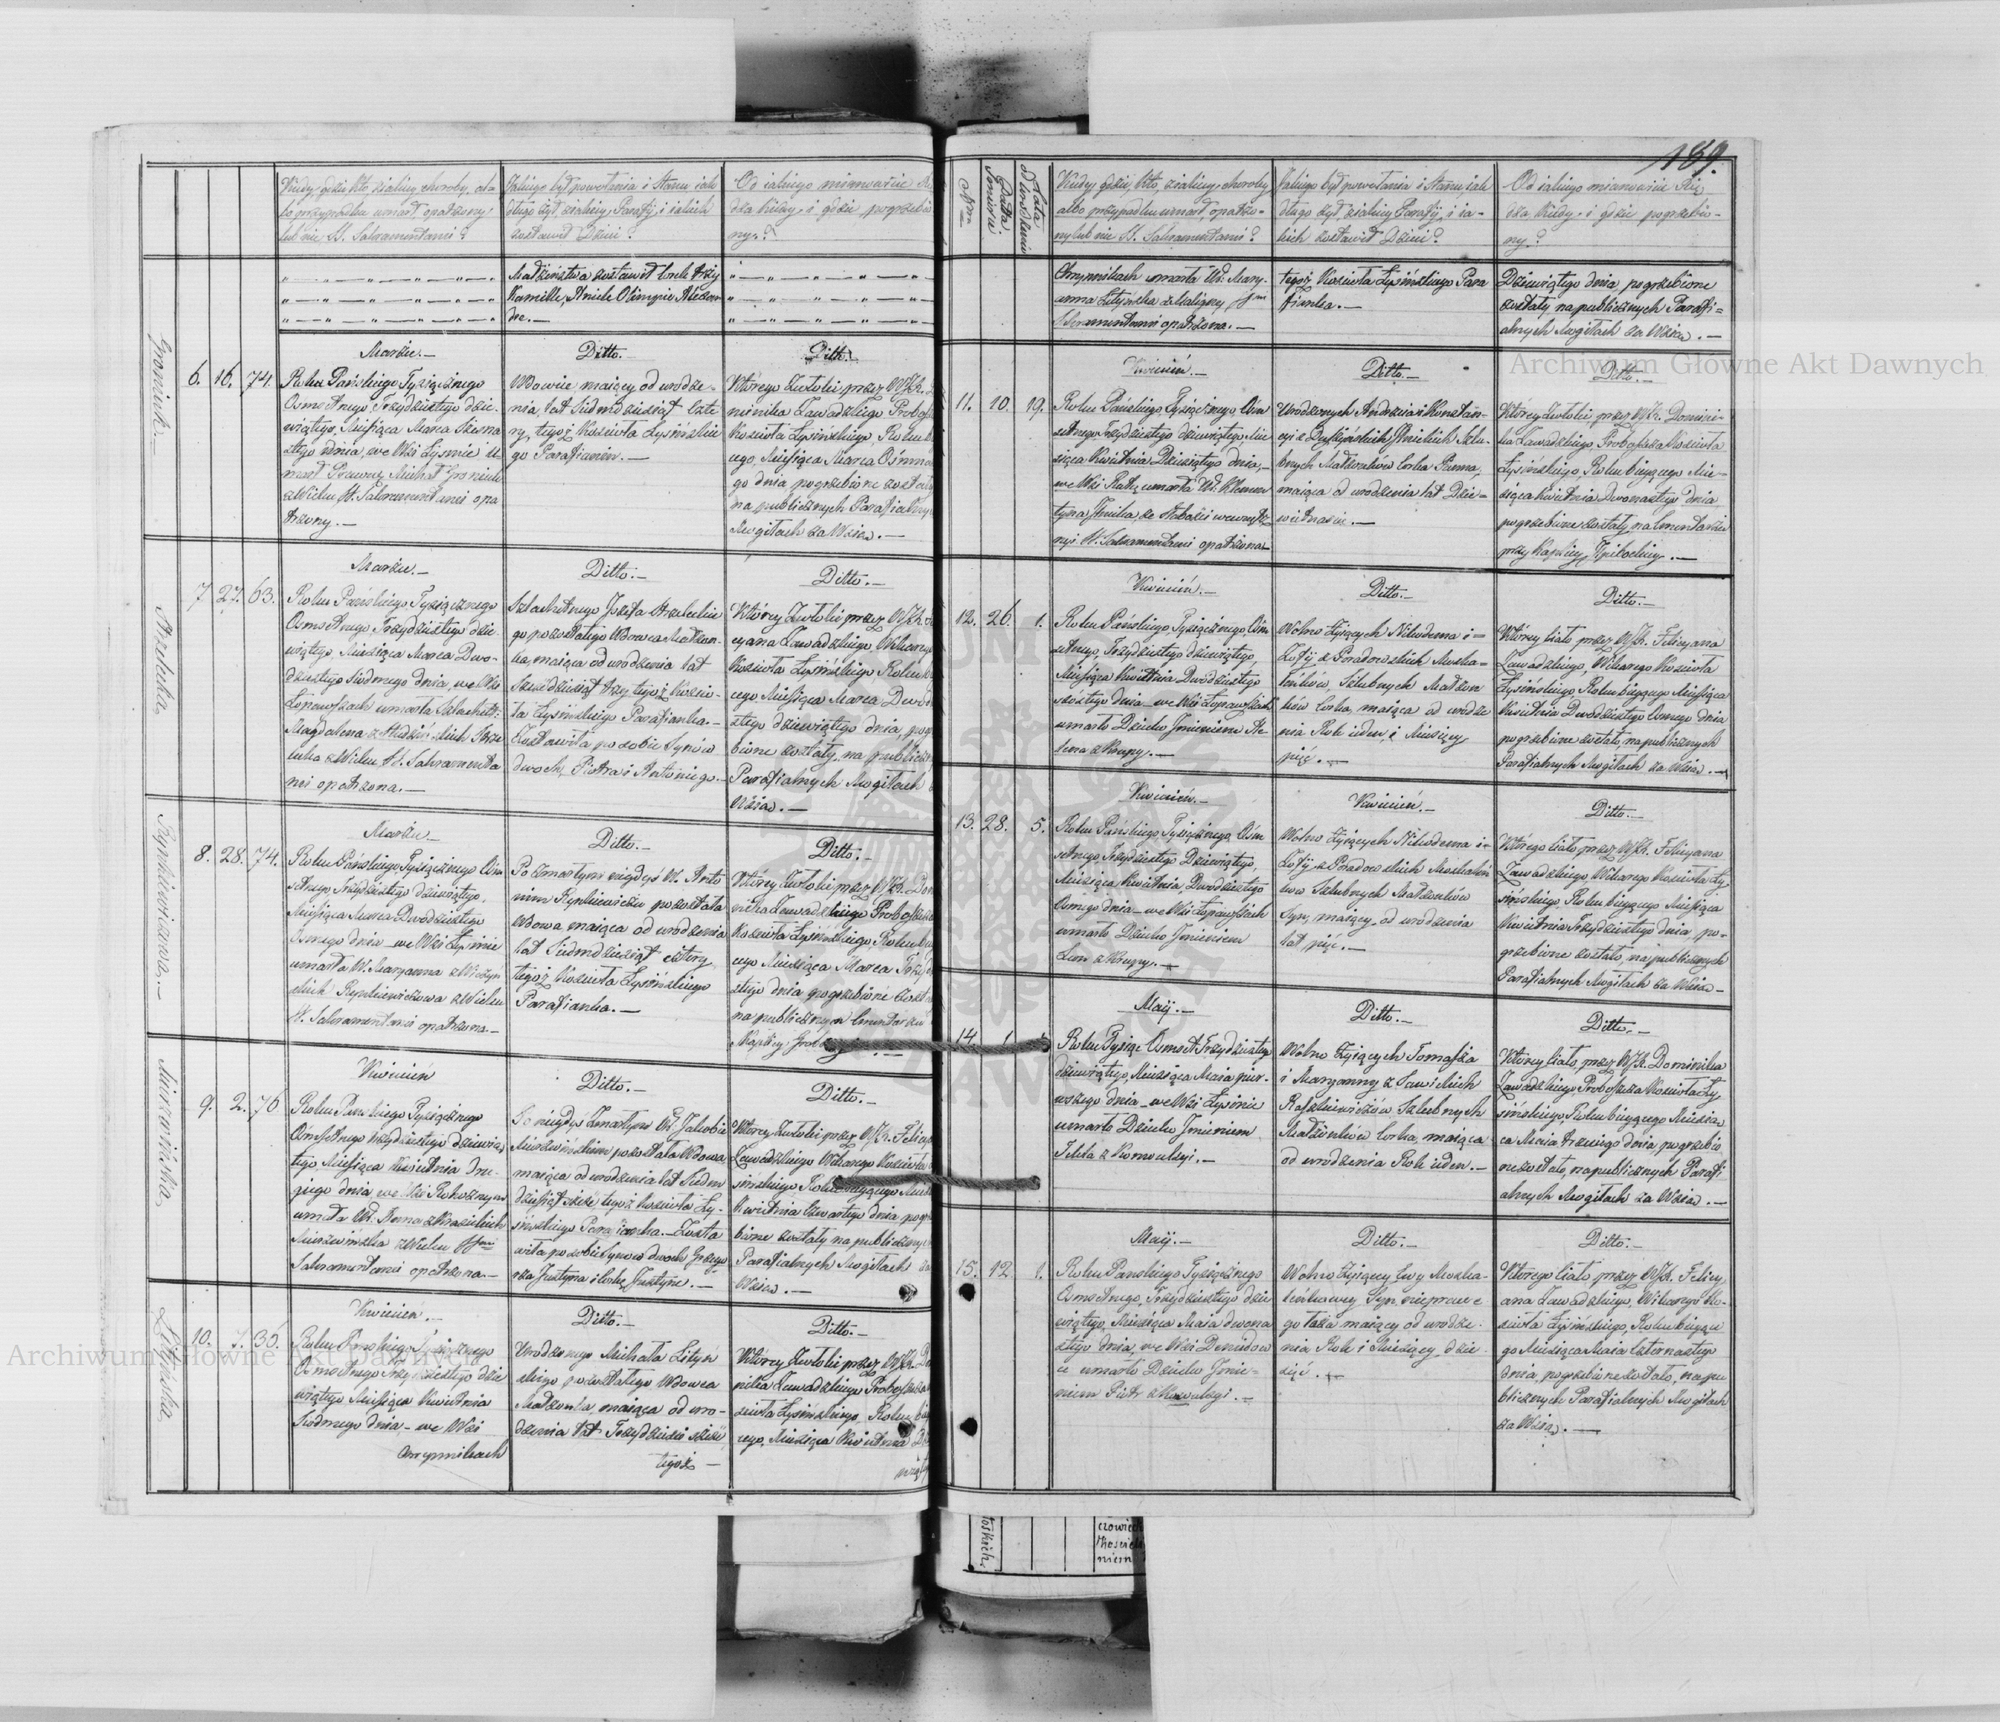 189.
Kiedy, gdzie, kto, z jakiey choroby, al-
bo przypadku umarł, opatrzony,
lub nie SS. Sakramentami?
Jakiego był powołania i Stanu, jak
długo żył, z jakiey Parafij, i jakich
zostawił Dzieci?
Od jakiego mianowicie
dza kiedy, i gdzie pogrzebio
ny?
Małżeństwa zostawił Corek trzy
Kamille, Aniele Olimpie Alexan
dre.—
Groniuk.—
6. 16. 74.
Marzec.—
Roku Pańskiego Tysiącznego
Osmsetnego Trzydziestego dzie-
wiątego, Miesiąca Marca Szesna
stego dnia, we Wsi Łysowie u-
marł Pracow. Michał Groniuk
z Wieku SS. Sakramentami opa
trzony.—
Ditto.—
Wdowiec maiący od urodze-
nia, lat Siedmdziesiąt Czte
ry, tegoż Kościoła Łysińskie
go Parafianin.—
Ditto.
Którego Zwłoki przez WJX.
minika Zawadzkiego Probo
Kościoła Łysińskiego, Roku b
cego, Miesiąca Marca Ośmna
go dnia pogrzebione zosta
na publicznych Parafialny
Mogiłach za Wsią.—
Strzelecka
7. 27. 63.
Marzec.—
Roku Pańskiego, Tysiącznego
Osmsetnego Trzydziestego dzie
wiątego, Miesiąca Marca Dwu-
dziestego Siodmego dnia, we Wsi
umarła Szlachet:
Magdalena z Strze
lecka z Wieku SS. Sakramenta
mi opatrzona.—
Ditto.—
Szlachetnego Józefa Strzeleckie
go pozostałego Wdowca Małżon-
ka, maiąca od urodzenia lat
Sześdziesiąt trzy tegoż Kościo-
ła Łysińskiego Parafianka.—
Zostawiła po sobie Synów
dwóch, Piotra i Antoniego.—
Ditto.—
Którey Zwłoki przez WJX.
cyana Zawadzkiego, Wikarego
Kościoła Łysińskiego Roku b
cego Miesiąca Marca Dwud
stego dziewiątego dnia, pog
bione zostały, na publiczn
Parafialnych Mogiłach
Wsią.—
Rynkiewiczowa.—
8. 28. 74.
Marzec.—
Roku Pańskiego Tysiącznego Ośm
setnego, Trzydziestego dziewiątego,
Miesiąca Marca Dwudziestego
Osmego dnia—we Wsi Łysowie
umarła W. Maryanna z
skich Rynkiewiczowa z Wieku
SS. Sakramentami opatrzona.—
Ditto.—
Po Zmarłym niegdyś W. Anto
nim Rynkiewiczu pozostała
Wdowa, maiąca od urodzenia
lat Siedmdziesiąt cztery
tegoż Kościoła Łysińskiego
Parafianka.—
Ditto.—
Którey Zwłoki przez WJX. Do
minika Zawadzkiego Probo
Kościoła Łysińskiego, Roku b
cego Miesiąca Marca Trzydz
stego dnia pogrzebione zosta
na publicznym Cmentarzu
Kaplicy
Mierzwińska
9. 2. 76
Kwiecień
Roku Pańskiego Tysiącznego
Ośmsetnego trzydziestego dziewią
tego, Miesiąca Kwietnia dru-
giego dnia, we Wsi
umarła Wł. Anna z Krasickich
Mierzwińska z Wieku SSmi
Sakramentami opatrzona.—
Ditto.—
Po niegdyś Zmarłym Wł. Jakóbie
Mierzwińskim pozostała Wdowa
maiąca od urodzenia lat Siedm
dziesiąt sześć tegoż Kościoła Ły-
sińskiego Parafianka.—Zosta
wiła po sobie Synów dwóch Grzego
rza Justyna i Corkę Justynę.—
Ditto.—
Którey Zwłoki przez WJX. Felic
Zawadzkiego Wikarego Kościoła
sińskiego Roku bieżącego Mies
Kwietnia Czwartego dnia pogr
bione zostały na publiczny
Parafialnych Mogiłach za
Wsią.—
Lityńska
10. 7. 36.
Kwiecień.—
Roku Pańskiego Tysiącznego
Osmsetnego Trzydziestego dzie
wiątego Miesiąca Kwietnia
Siodmego dnia—we Wsi
Chrypnikach
Ditto.—
Urodzonego Michała Lityń
skiego pozostałego Wdowca
Małżonka, maiąca od uro-
dzenia lat Trzydzieści sześć
tegoż—
Ditto.—
Którey Zwłoki przez WJX. Do
minika Zawadzkiego Proboszcza
ścioła Łysińskiego, Roku bie
cego, Miesiąca Kwietnia D
wiąt
Nrm
Datta
Śmierci
Lata
od urodzenia
Kiedy, gdzie, kto, z jakiey choroby
albo przypadku umarł, opatrzo-
ny lub nie SS. Sakramentami?
Jakiego był powołania i Stanu jak
długo żył, z jakiey Parafij, i ia-
kich zostawił Dzieci?
Od jakiego mianowicie Xię
dza, kiedy, i gdzie pogrzebio-
ny?
Chrypnikach umarła Wł. Mary-
anna Lityńska z Maligny, SSmi
Sakramentami opatrzona.—
tegoż Kościoła Łysińskiego Para
fianka.—
Dziewiątego dnia, pogrzebione
zostały na publicznych Parafi=
alnych Mogiłach za Wsią.—
11. 10. 19.
Kwiecień.—
Roku Pańskiego, Tysiącznego, Ośm
setnego, Trzydziestego dziewiątego, Mie
siąca Kwietnia, Dziesiątego dnia,—
we Wsi umarła Wł. Klemen
tyna ze Słabości wewnętrz
nej SS. Sakramentami opatrzona—
Ditto.—
Urodzonych Andrzeia i Konstan-
cyi z Szlu-
bnych Małżonków Corka Panna,
maiąca od urodzenia lat Dzie-
więtnaście.—
Ditto.—
Którey Zwłoki, przez WJX. Domini-
ka Zawadzkiego, Proboszcza Kościoła
Łysińskiego, Roku bieżącego Mie-
siąca Kwietnia Dwunastego dnia
pogrzebione zostały, na Cmentarzu
przy Kaplicy
12. 26. 1.
Kwiecień.—
Roku Pańskiego, Tysiącznego, Ośm
setnego, Trzydziestego dziewiątego,
Miesiąca Kwietnia Dwudziestego
szóstego dnia—we Wsi
umarło Dziecko Jmieniem He
lena z Krupy.—
Ditto.—
Wolno Żyiących Nikodema i=
Zofij z Poradowskich
Szlubnych Małżon
ków Corka, maiąca od urodze
nia Rok ieden, i Miesięcy
pięć.—
Ditto.—
Którey ciało, przez WJX. Felicyana
Zawadzkiego, Wikarego Kościoła
Łysińskiego, Roku bieżącego Miesiąca
Kwietnia Dwudziestego Osmego dnia
pogrzebione zostało, na publicznych
Parafialnych Mogiłach za Wsią.—
13. 28. 5.
Kwiecień.—
Roku Pańskiego, Tysiącznego, Ośm
setnego Trzydziestego Dziewiątego,
Miesiąca Kwietnia, Dwudziestego
Osmego dnia—we Wsi
umarło Dziecko Jmieniem
Leon z Krupy.—
Kwiecień.—
Wolno Żyiących Nikodema i=
Zofij z Poradowskich
Szlubnych Małżonków
Syn, maiący od urodzenia
lat pięć.—
Ditto.—
Którego ciało, przez WJX. Felicyana
Zawadzkiego, Wikarego Kościoła Ły
sińskiego, Roku bieżącego Miesiąca
Kwietnia Trzydziestego dnia, po-
grzebione zostało, na publicznych
Parafialnych Mogiłach za Wsią—
14. 1.
Maij.—
Roku Tysiąc Osmset Trzydziestego
dziewiątego, Miesiąca Maia pier-
wszego dnia—we Wsi Łysowie
umarło Dziecko Jmieniem
Tekla z Konwulsyi.—
Ditto.—
Wolno Żyiących Tomasza
i Maryanny z Sawickich
Szlubnych
Małżonków Corka, maiąca
od urodzenia Rok ieden.—
Ditto.—
Którey ciało, przez WJX. Dominika
Zawadzkiego, Proboszcza Kościoła Ły
sińskiego, Roku bieżącego Miesią-
ca Maia trzeciego dnia, pogrzebio
ne zostało, na publicznych Parafi
alnych Mogiłach za Wsią.—
15. 12 1.
Maij.—
Roku Pańskiego Tysiącznego
Osmsetnego, Trzydziestego dzie
wiątego, Miesiąca Maia dwuna
stego dnia, we Wsi
umarło Dziecko Jmie-
niem Piotr z Konwulsyi.—
Ditto.—
Wolno Żyiącey Ewy
Syn, nieprawe
go łoża maiący od urodze-
nia Rok i Miesięcy dzie-
sięć.—
Ditto.—
Którego ciało, przez WJX. Felicy
ana Zawadzkiego, Wikarego Ko-
ścioła Łysińskiego, Roku bieżące
go Miesiąca Maia Czternastego
dnia, pogrzebione zostało, na pu
blicznych Parafialnych Mogiłach
za Wsią.—
Archiwum Główne Akt Dawnych
Archiwum Główne Akt Dawnych